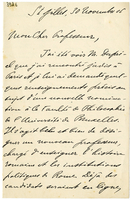 St Gilles, 30 Novembre
Mon cher Professeur,
J'ai été voir M.
que j'ai rencontré jadis à
Paris et je lui ai demandé quel-
ques renseignements précis au
sujet d'une nouvelle nomina-
tion à la Faculté de Philosophie
de l'Université de Bruxelles.
Il s'agit bien de
un nouveau professeur,
chargé d'enseigner l'histoire
romaine et les institutions
politiques de Rome. Déjà les
candidats seraient en ligne,